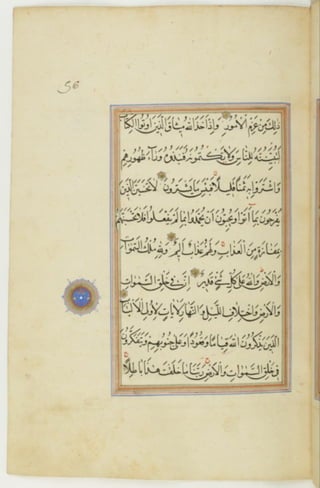 56
ذلك من عزم الامور واذ اخذ الله ميثاق الذين اوتوا الكتاب
لتبيننه للناس ولا تكتمونه فنبذوه وراء ظهورهم
واشتروا به ثمنا قليلا فبئس ما يشترون لا تحسبن الذين
يفرحون بما اتوا ويحبون ان يحمدوا بما لم يفعلوا فلا تحسبنهم
بمفازة من العذاب ولهم عذاب اليم ولله ملك السموات
والارض والله على كل شيء قدير ان في خلق السموات
والارض واختلاف الليل والنهار لايات لاولي الالباب
الذين يذكرون الله قياما وقعودا وعلى جنوبهم ويتفكرون
في خلق السموات والارض ربنا ما خلقت هذا باطلا